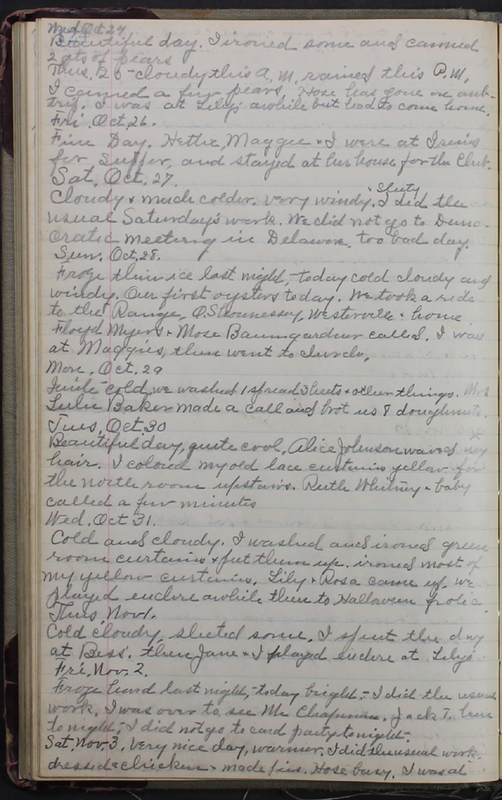 Wed. Oct 24
Beautiful day. I ironed some and canned
2 qts of pears
Thus. 25 - cloudy this A.M. rained this P.M.
I canned a few pears, Hose has gone on
try. I was at Lily's awhile but had to come home.
Fri. Oct. 26.
Fine Day. Hettie, Maggie & I were at
for Supper, and stayed at her house for the Club.
Sat. Oct. 27.
Sleety
Cloudy & much colder. very windy. I did the
usual Saturday's work. We did not go to Demo-
cratic meeting in Delaware. too bad day.
Sun. Oct. 28.
Froze thin ice last night, today cold cloudy and
windy. Our first oysters today. We took a ride
to the Range, Westerville & home
Floyd Myers & Mose Baumgardner called. I was
at Maggies, then went to church.
Mon. Oct. 29
Quite cold, we washed 1 spread 3 sheets & other things. Mrs
Baker made a call and brot us 8 doughnuts.
Tues. Oct. 30
Beautiful day, quite cool, Alice Johnson waved my
hair. I colored my old lace curtains yellow for
the north room upstairs. Ruth Whitney & baby
called a few minutes
Wed. Oct 31.
Cold and cloudy. I washed and ironed green
room curtains & put them up. ironed most of
my yellow curtains. Lily & Rosa came up. we
played euchre awhile then to Halloween frolic.
Thus. Nov 1.
Cold cloudy sleeted some. I spent the day
at Bess. then Jane & I played euchre at Lily's
Fri. Nov. 2.
Froze hard last night, - today bright. - I did the usual
work. I was over to see Mr Chapman. Jack T. here
to night, - I did not go to card party to night. -
Sat. Nov. 3. Very nice day, warmer. I did the usual work.
dressed 2 chickens & made pies. Hose busy. I was at